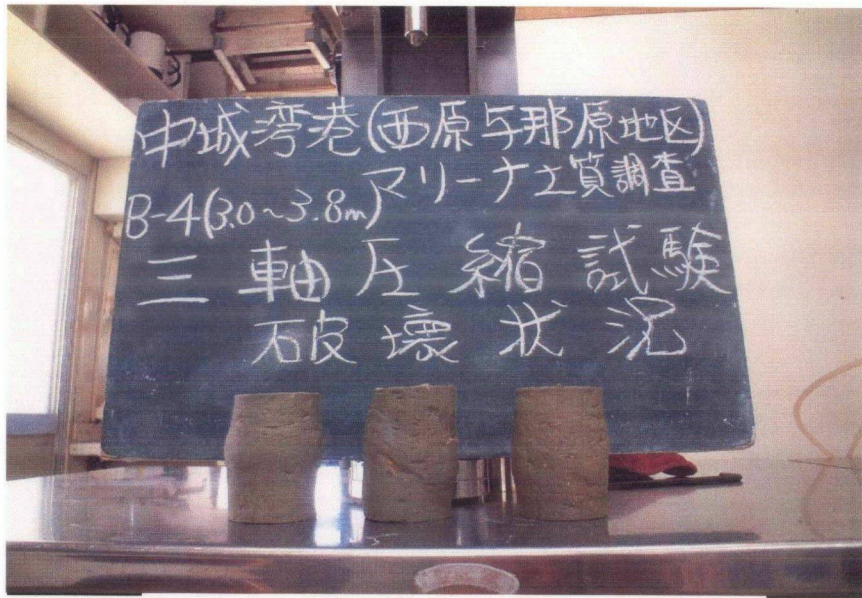 中城湾港(西原与那原地区)
マリーナ土質調査
B-4(3.0~3.8m)
三軸圧縮試験
破壊状況